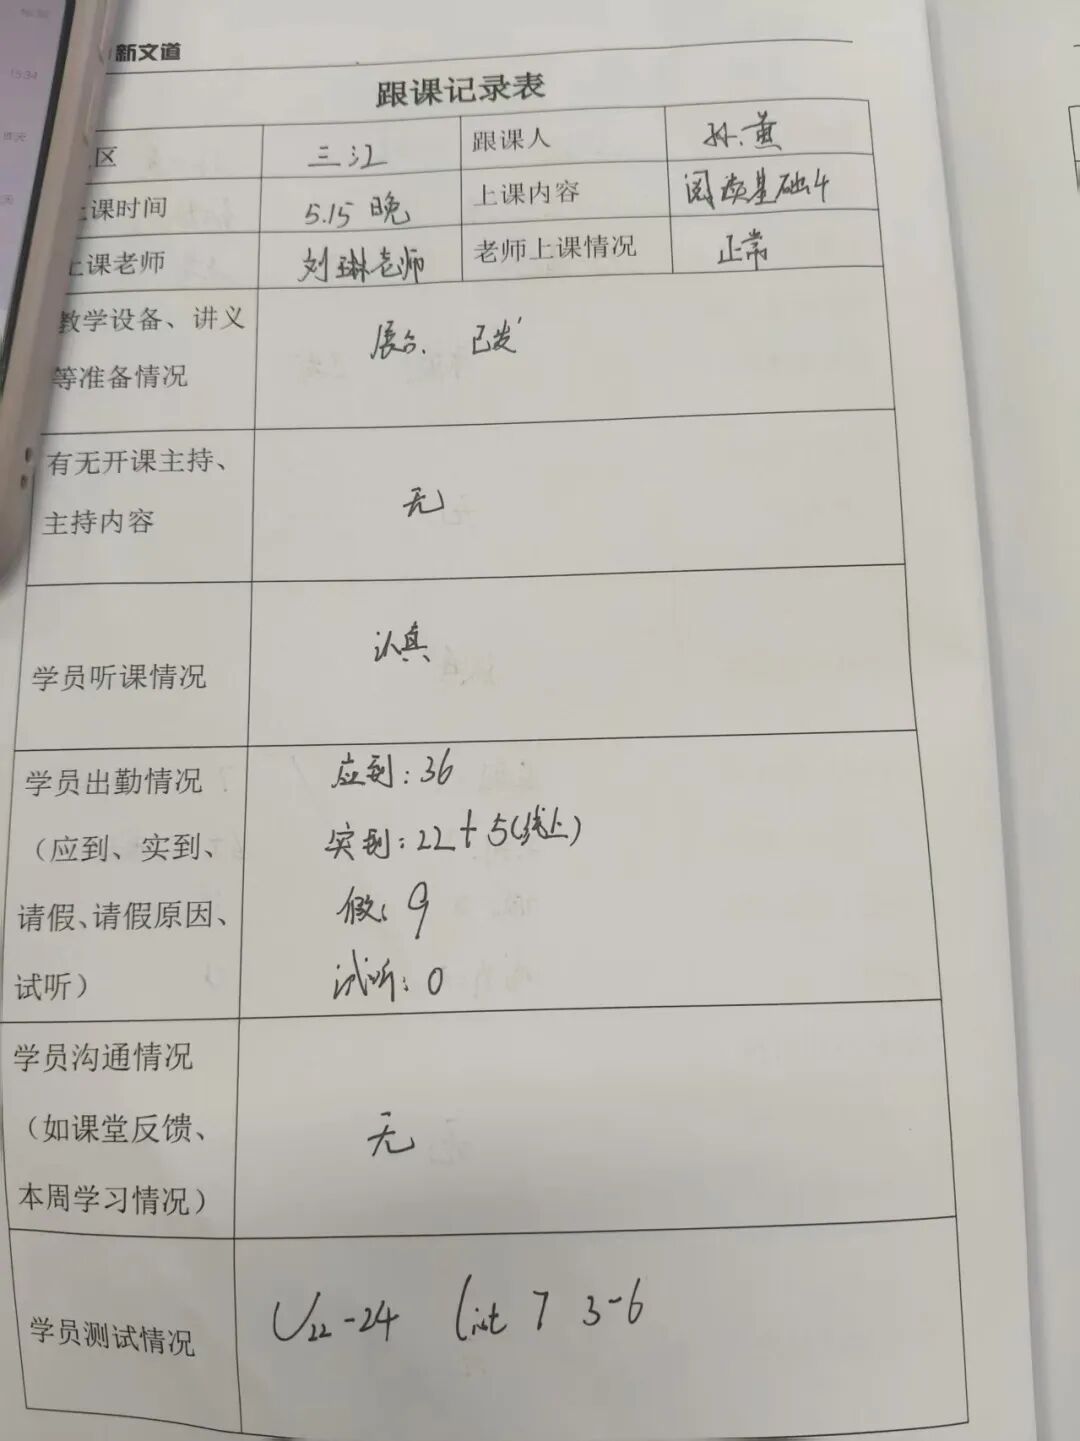 新文道
跟课记录表
区 三江 跟课人 孙燕
上课时间 5.15 晚 上课内容 阅读基础4
上课老师 刘琳老师 老师上课情况 正常
教学设备、讲义
等准备情况
展台、已发
有无开课主持、
主持内容
无
学员听课情况
认真
学员出勤情况
（应到、实到、
请假、请假原因、
试听）
应到：36
实到：22+5(线上)
假：9
试听：0
学员沟通情况
（如课堂反馈、
本周学习情况）
无
学员测试情况
U22-24 list 7 3-6